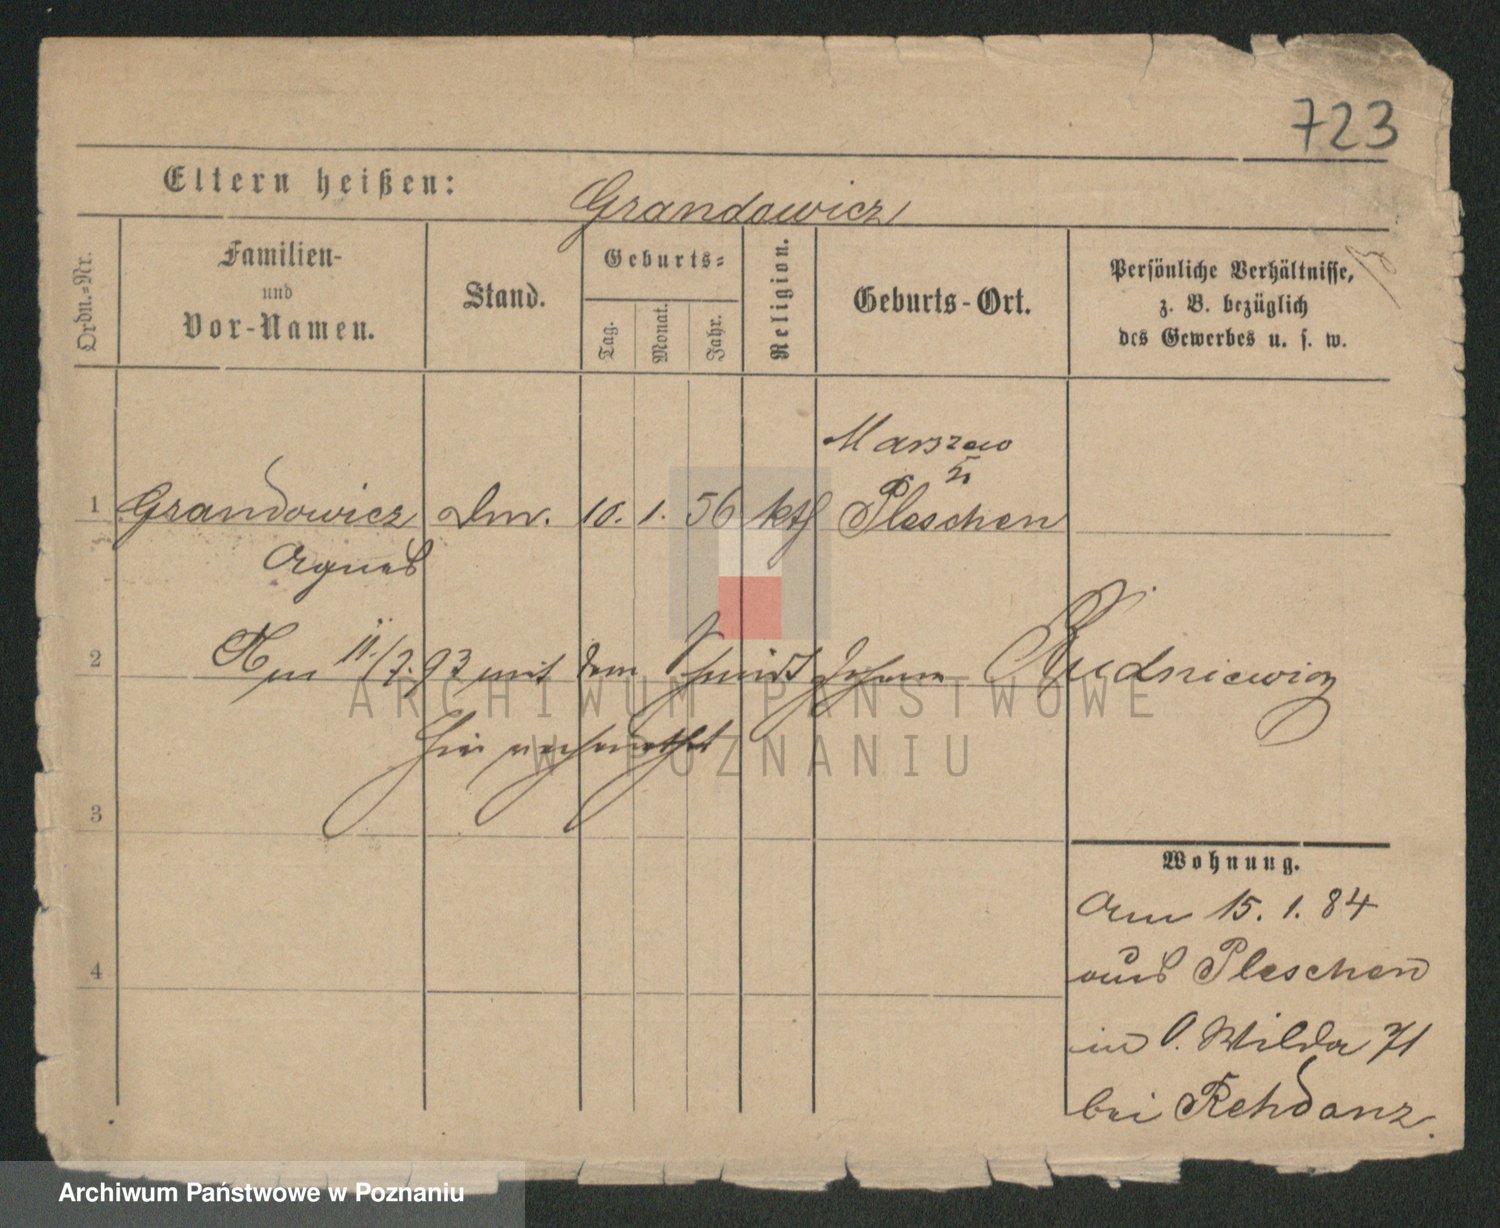 723
Eltern heißen: Grandowicz
Ordn.-Nr.
Familien-
und
Vor-Namen.
Stand.
Geburts-
Tag.
Monat.
Jahr.
Religion.
Geburts-Ort.
Persönliche Verhältnisse,
z. B. bezüglich
des Gewerbes u. s. w.
Marszew
1 Grandowicz 10. 1. 56 kth Pleschen
Agnes
2 Am 11./7. 93 mit dem Schmidt Johann Rudniewicz
hier verheirathet
3
4
Wohnung.
Am 15. 1. 84
aus Pleschen
in O. Wilda 71
bei Rehdanz.
ARCHIWUM PAŃSTWOWE
W POZNANIU
Archiwum Państwowe w Poznaniu